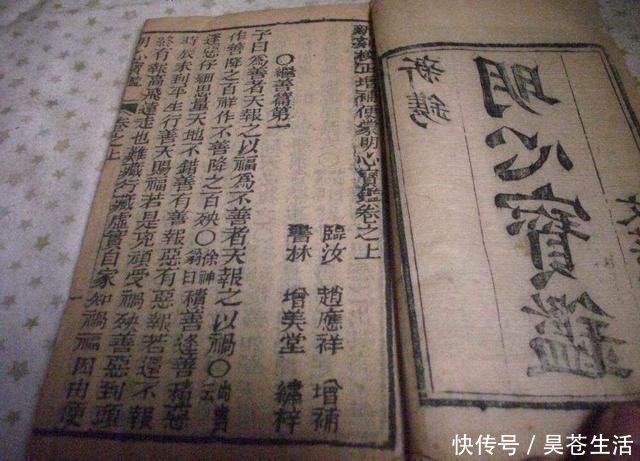 明心寶鑑
新鐫
新鐫校正增補便蒙明心寶鑑卷之上
臨汝 趙應祥 增補
書林 增美堂 繡梓
○繼善篇第一
子曰為善者天報之以福為不善者天報之以禍○尚書云
作善降之百祥作不善降之百殃○徐神翁曰積善逢善積惡
逢惡仔細思量天地不錯善有善報惡有惡報若還不報
時辰未到平生行善天賜福若是兇頑受禍殃善惡到頭
終有報高飛遠走也難藏行藏虛實自家知禍因由便
明心寶鑑 卷之上
快传号/昊苍生活